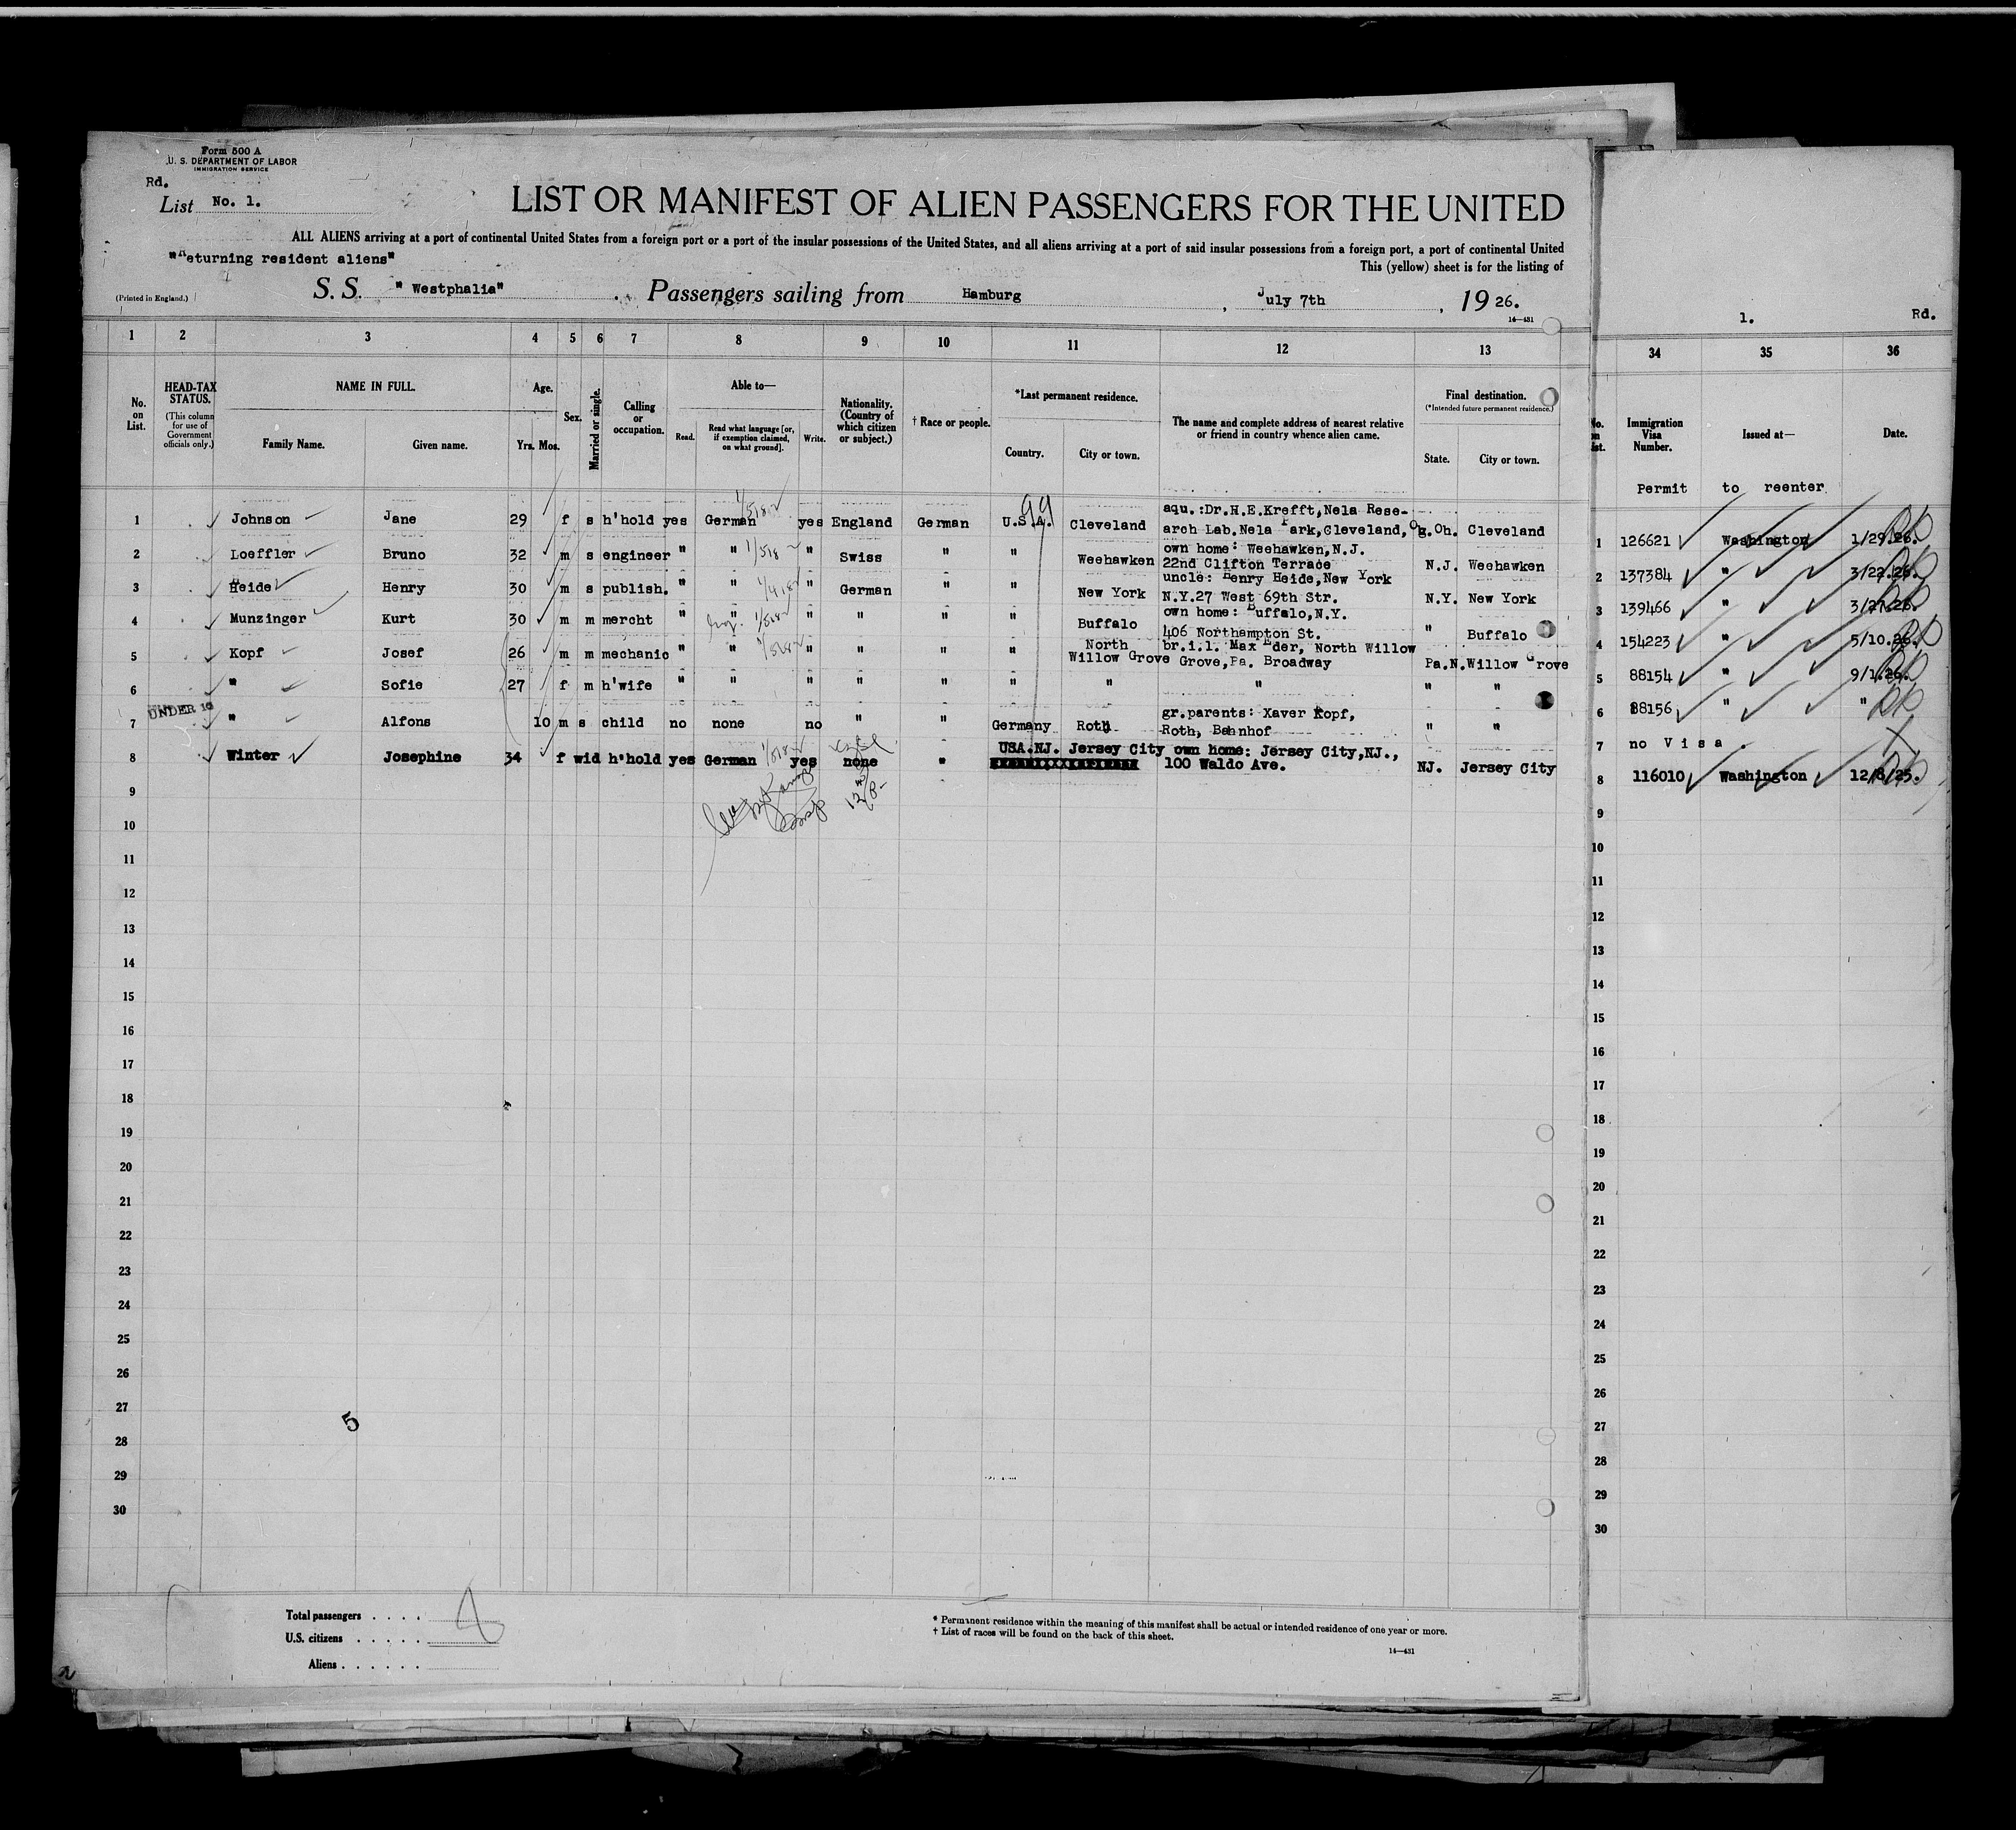 Form 500 A
U. S. DEPARTMENT OF LABOR
IMMIGRATION SERVICE
Rd.
List No. 1.
LIST OR MANIFEST OF ALIEN PASSENGERS FOR THE UNITED
ALL ALIENS arriving at a port of continental United States from a foreign port or a port of the insular possessions of the United States, and all aliens arriving at a port of said insular possessions from a foreign port, a port of continental United
"Returning resident aliens"
This (yellow) sheet is for the listing of
(Printed in England.)
S. S. "Westphalia" Passengers sailing from Hamburg, July 7th, 1926.
14—431
1. Rd.
1 2 3 4 5 6 7 8 9 10 11 12 13 34 35 36
No. on List.
HEAD-TAX STATUS.
(This column for use of Government officials only.)
NAME IN FULL.
Family Name. Given name.
Age.
Yrs. Mos.
Sex.
Married or single.
Calling or occupation.
Able to—
Read. Read what language [or, if exemption claimed, on what ground]. Write.
Nationality. (Country of which citizen or subject.)
† Race or people.
*Last permanent residence.
Country. City or town.
The name and complete address of nearest relative or friend in country whence alien came.
Final destination.
(*Intended future permanent residence.)
State. City or town.
No. on List.
Immigration Visa Number.
Issued at—
Date.
Permit to reenter
99
1 Johnson Jane 29 f s h'hold yes German yes England German U.S.A. Cleveland aqu.:Dr.H.E.Krefft,Nela Rese-
arch Lab.Nela Park,Cleveland,Og.Oh. Cleveland 1 126621 Washington 1/29.26.
2 Loeffler Bruno 32 m s engineer " " " Swiss " " Weehawken own home: Weehawken,N.J.
22nd Clifton Terrace N.J. Weehawken 2 137384 " 3/22.26.
3 Heide Henry 30 m s publish. " " " German " " New York uncle: Henry Heide,New York
N.Y.27 West 69th Str. N.Y. New York 3 139466 " 3/27.26.
4 Munzinger Kurt 30 m m mercht " " " " " " Buffalo own home: Buffalo,N.Y.
406 Northampton St. " Buffalo 4 154223 " 5/10.26.
5 Kopf Josef 26 m m mechanic " " " " " " North Willow Grove br.i.l. Max Eder, North Willow
Grove,Pa. Broadway Pa. N.Willow Grove 5 88154 " 9/1.26.
6 " Sofie 27 f m h'wife " " " " " " " " " " 6 88156 " "
UNDER 16
7 " Alfons 10 m s child no none no " " Germany Roth gr.parents: Xaver Kopf,
Roth, Bahnhof " " 7 no Visa.
8 Winter Josephine 34 f wid h'hold yes German yes none " USA.NJ. Jersey City own home: Jersey City,NJ.,
100 Waldo Ave. NJ. Jersey City 8 116010 Washington 12/8/25.
9 9
10 10
11 11
12 12
13 13
14 14
15 15
16 16
17 17
18 18
19 19
20 20
21 21
22 22
23 23
24 24
25 25
26 26
27 27
5
28 28
29 29
30 30
Total passengers . . . .
U.S. citizens . . . . .
Aliens . . . . . .
* Permanent residence within the meaning of this manifest shall be actual or intended residence of one year or more.
† List of races will be found on the back of this sheet.
14—431